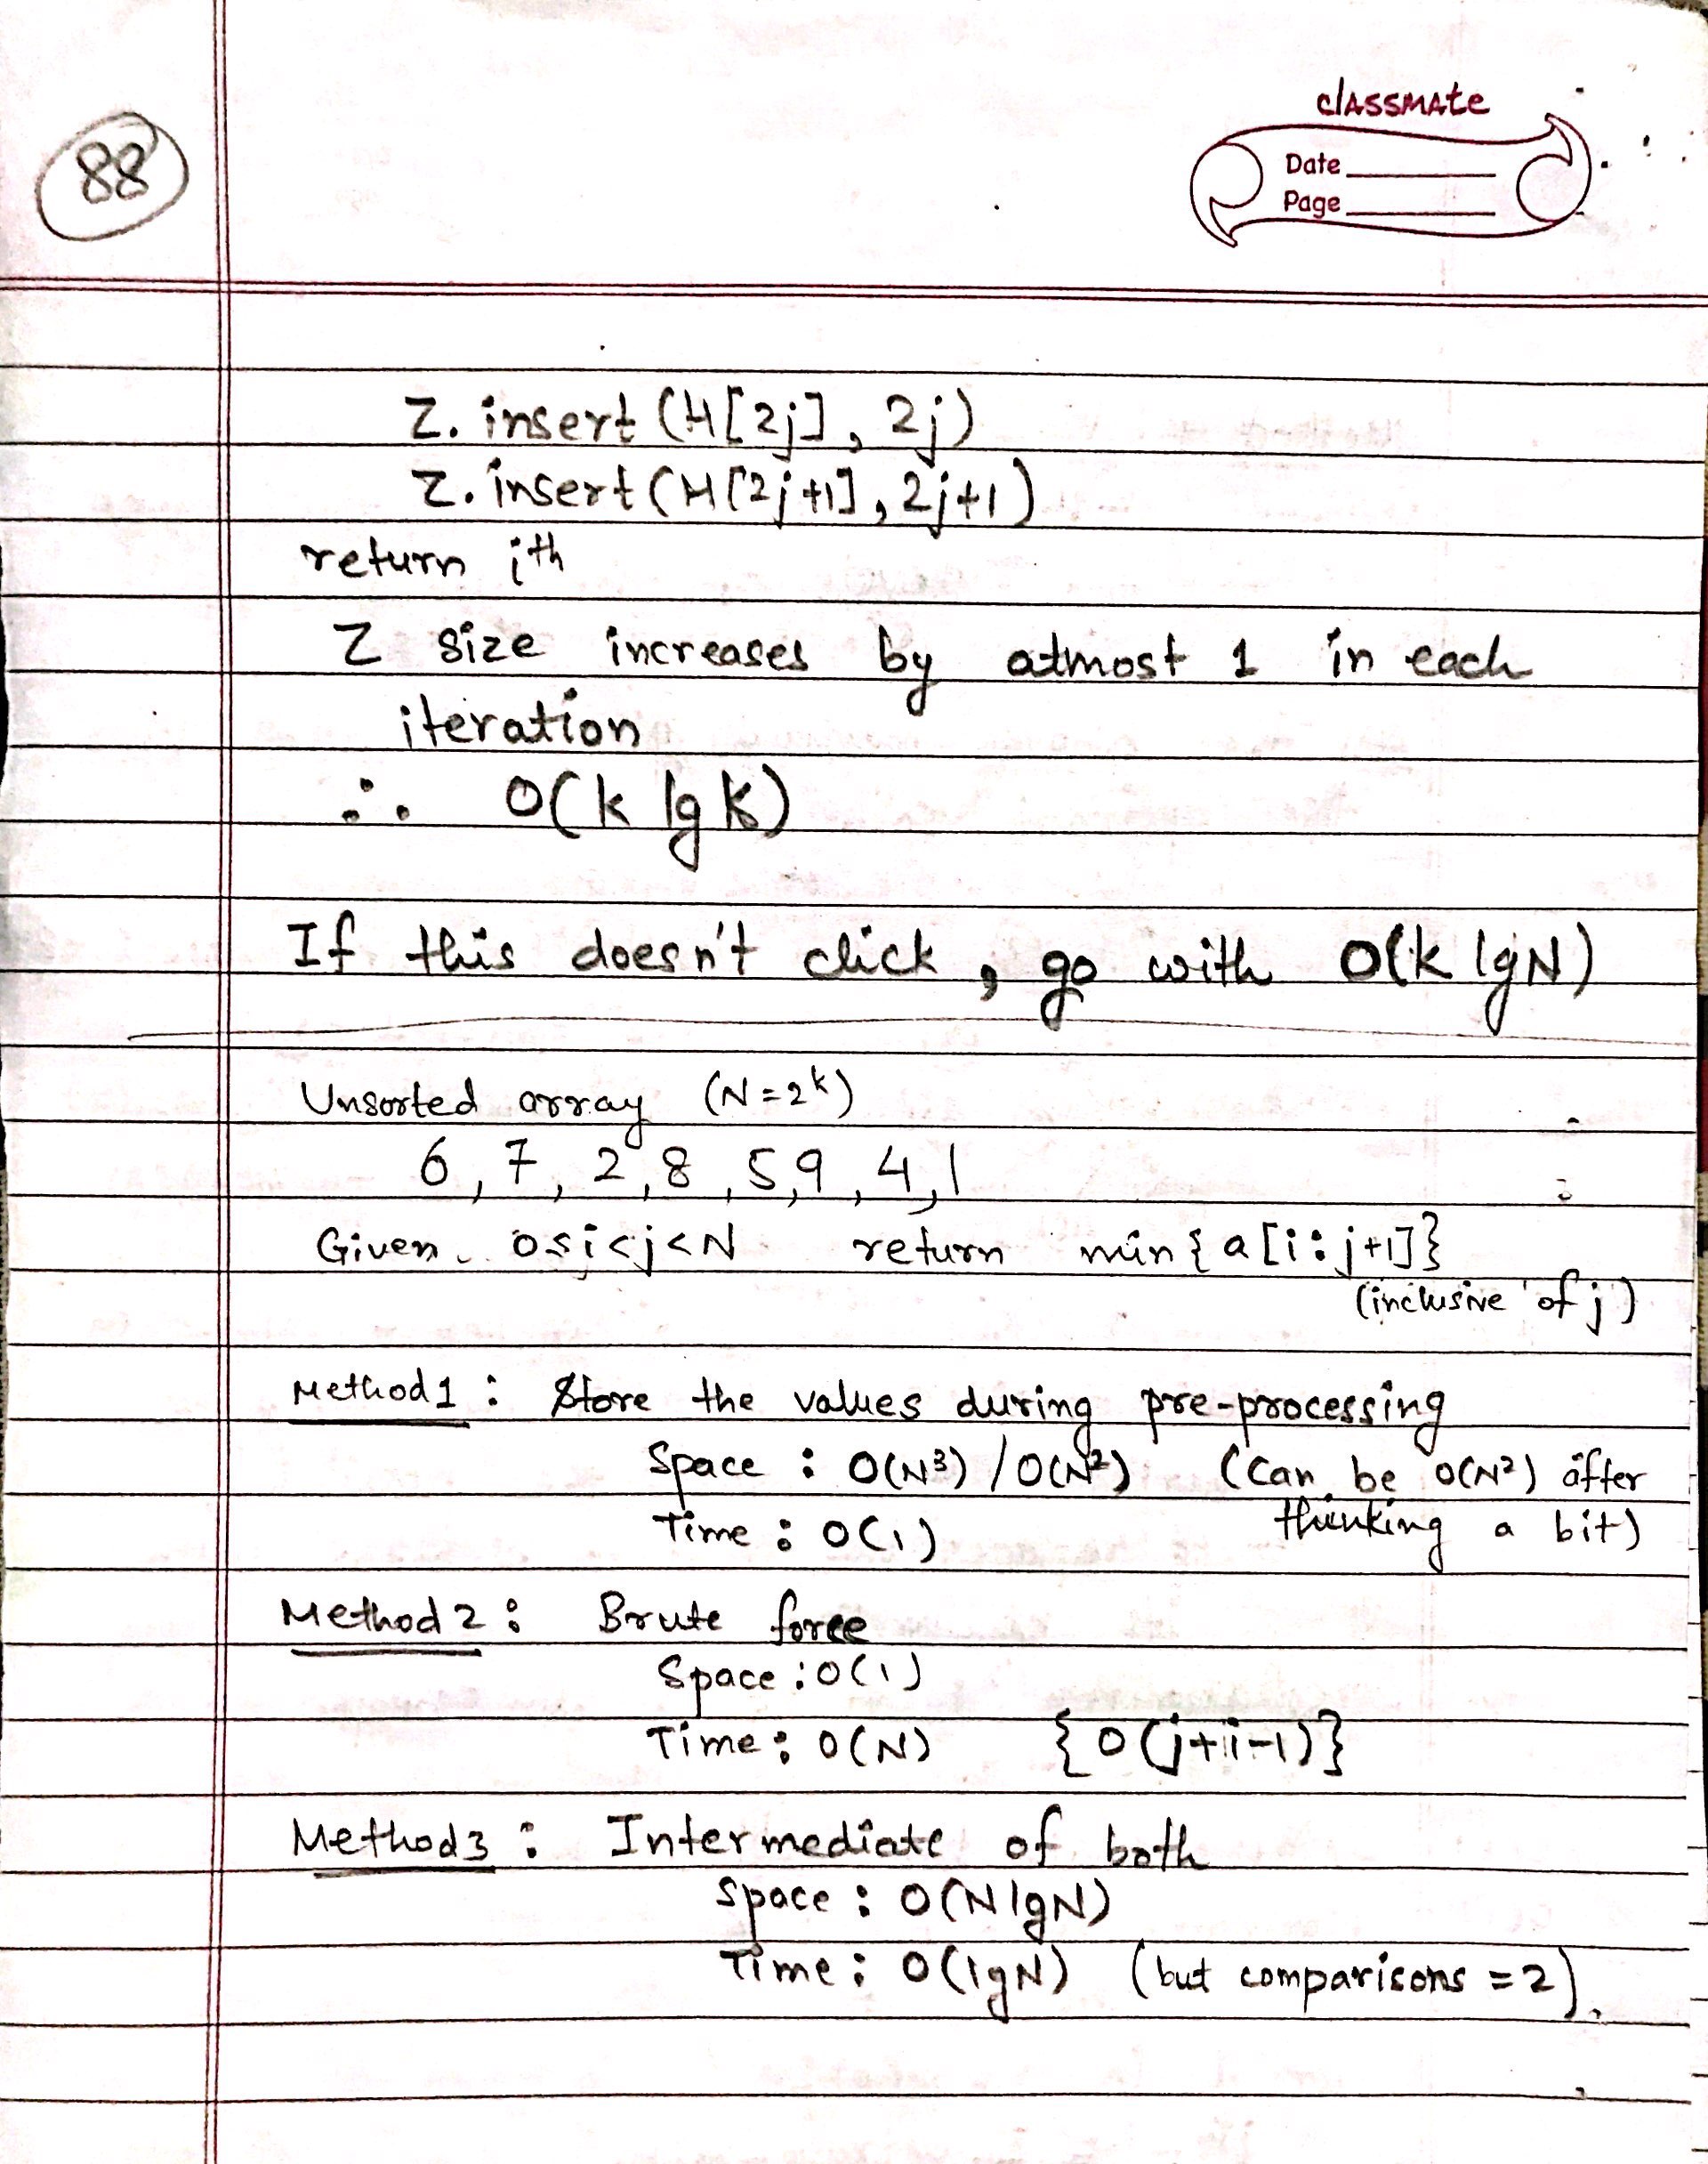 88
classmate
Date
Page
Z. insert (H[2j], 2j)
Z. insert (H[2j+1], 2j+1)
return ith
Z size increases by atmost 1 in each
iteration
∴ O(k lg k)
If this doesn't click, go with O(k lgN)
Unsorted array (N=2^k)
6, 7, 2, 8, 5, 9, 4, 1
Given 0≤i<j<N return min{a[i:j+1]}
(inclusive of j)
Method1: Store the values during pre-processing
Space: O(N³) / O(N²) (Can be O(N²) after
Time: O(1) thinking a bit)
Method2: Brute force
Space: O(1)
Time: O(N) {O(j+i-1)}
Method3: Intermediate of both
Space: O(NlgN)
Time: O(lgN) (but comparisons = 2).